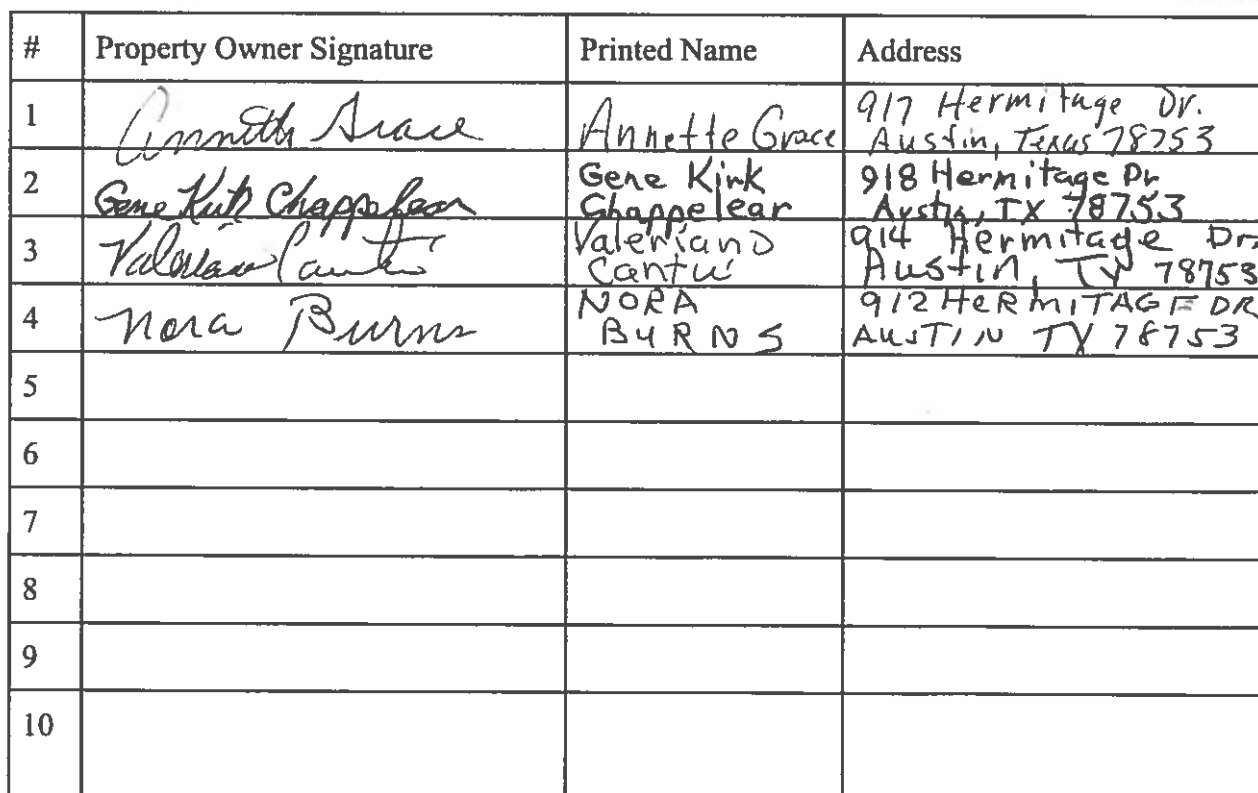 # Property Owner Signature Printed Name Address
1 Annette Grace Annette Grace 917 Hermitage Dr.
Austin, Texas 78753
2 Gene Kirk Chappelear Gene Kirk
Chappelear 918 Hermitage Dr
Austin, TX 78753
3 Valeriano Cantú Valeriano
Cantú 914 Hermitage Dr.
Austin, TX 78753
4 Nora Burns NORA
BURNS 912 HERMITAGE DR
AUSTIN TX 78753
5
6
7
8
9
10